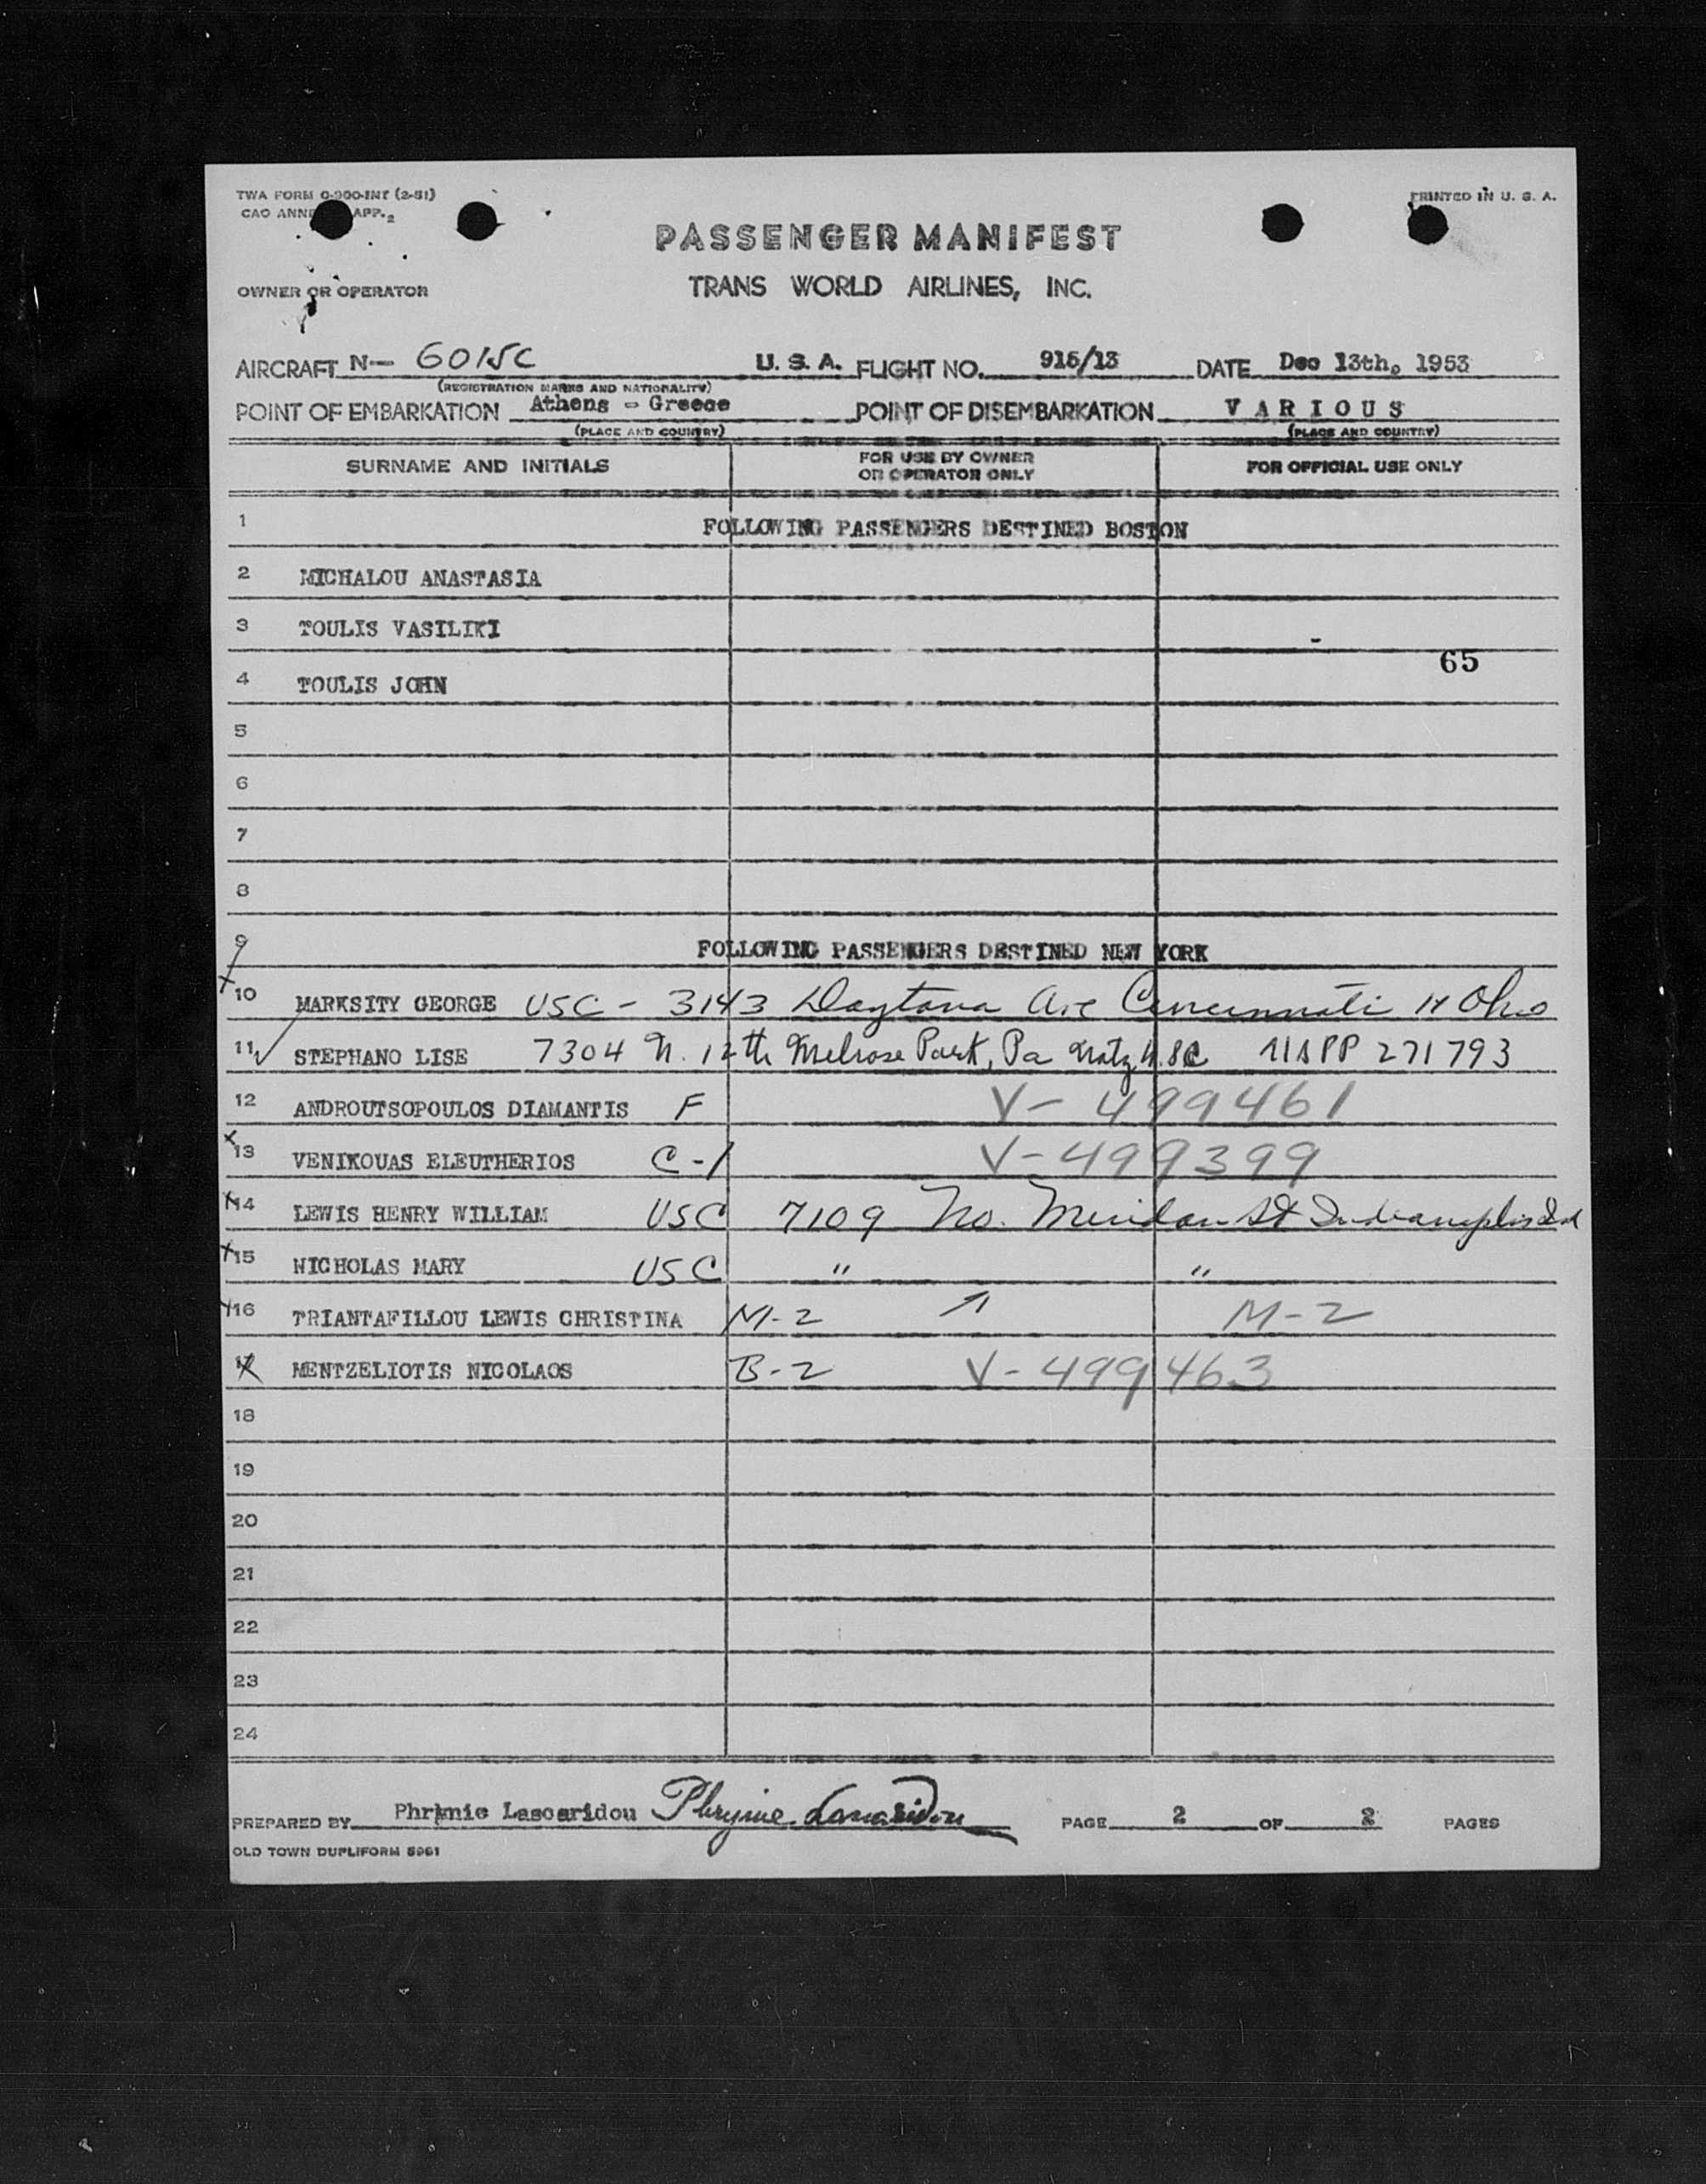 TWA FORM O-900-INT (2-51)
CAO ANNE APP. 2
PRINTED IN U. S. A.
PASSENGER MANIFEST
TRANS WORLD AIRLINES, INC.
OWNER OR OPERATOR
AIRCRAFT N- 6015C U. S. A. FLIGHT NO. 915/13 DATE Dec 13th, 1953
(REGISTRATION MARKS AND NATIONALITY)
POINT OF EMBARKATION Athens - Greece POINT OF DISEMBARKATION VARIOUS
(PLACE AND COUNTRY) (PLACE AND COUNTRY)
SURNAME AND INITIALS FOR USE BY OWNER OR OPERATOR ONLY FOR OFFICIAL USE ONLY
1 FOLLOWING PASSENGERS DESTINED BOSTON
2 MICHALOU ANASTASIA
3 TOULIS VASILIKI
65
4 TOULIS JOHN
5
6
7
8
9 FOLLOWING PASSENGERS DESTINED NEW YORK
10 MARKSITY GEORGE USC - 3143 Daytona Ave Cincinnati 11 Ohio
11 STEPHANO LISE 7304 N. 12th Melrose Park, Pa Natz U.S.C. USPP 271793
12 ANDROUTSOPOULOS DIAMANTIS F V-499461
13 VENIKOUAS ELEUTHERIOS C-1 V-499399
14 LEWIS HENRY WILLIAM USC 7109 No. Meridan St Indianaplis Ind
15 NICHOLAS MARY USC " "
16 TRIANTAFILLOU LEWIS CHRISTINA M-2 M-2
17 MENTZELIOTIS NICOLAOS B-2 V-499463
18
19
20
21
22
23
24
PREPARED BY Phrynie Lascaridou Phrynie Lascaridou PAGE 2 OF 2 PAGES
OLD TOWN DUPLIFORM 5061